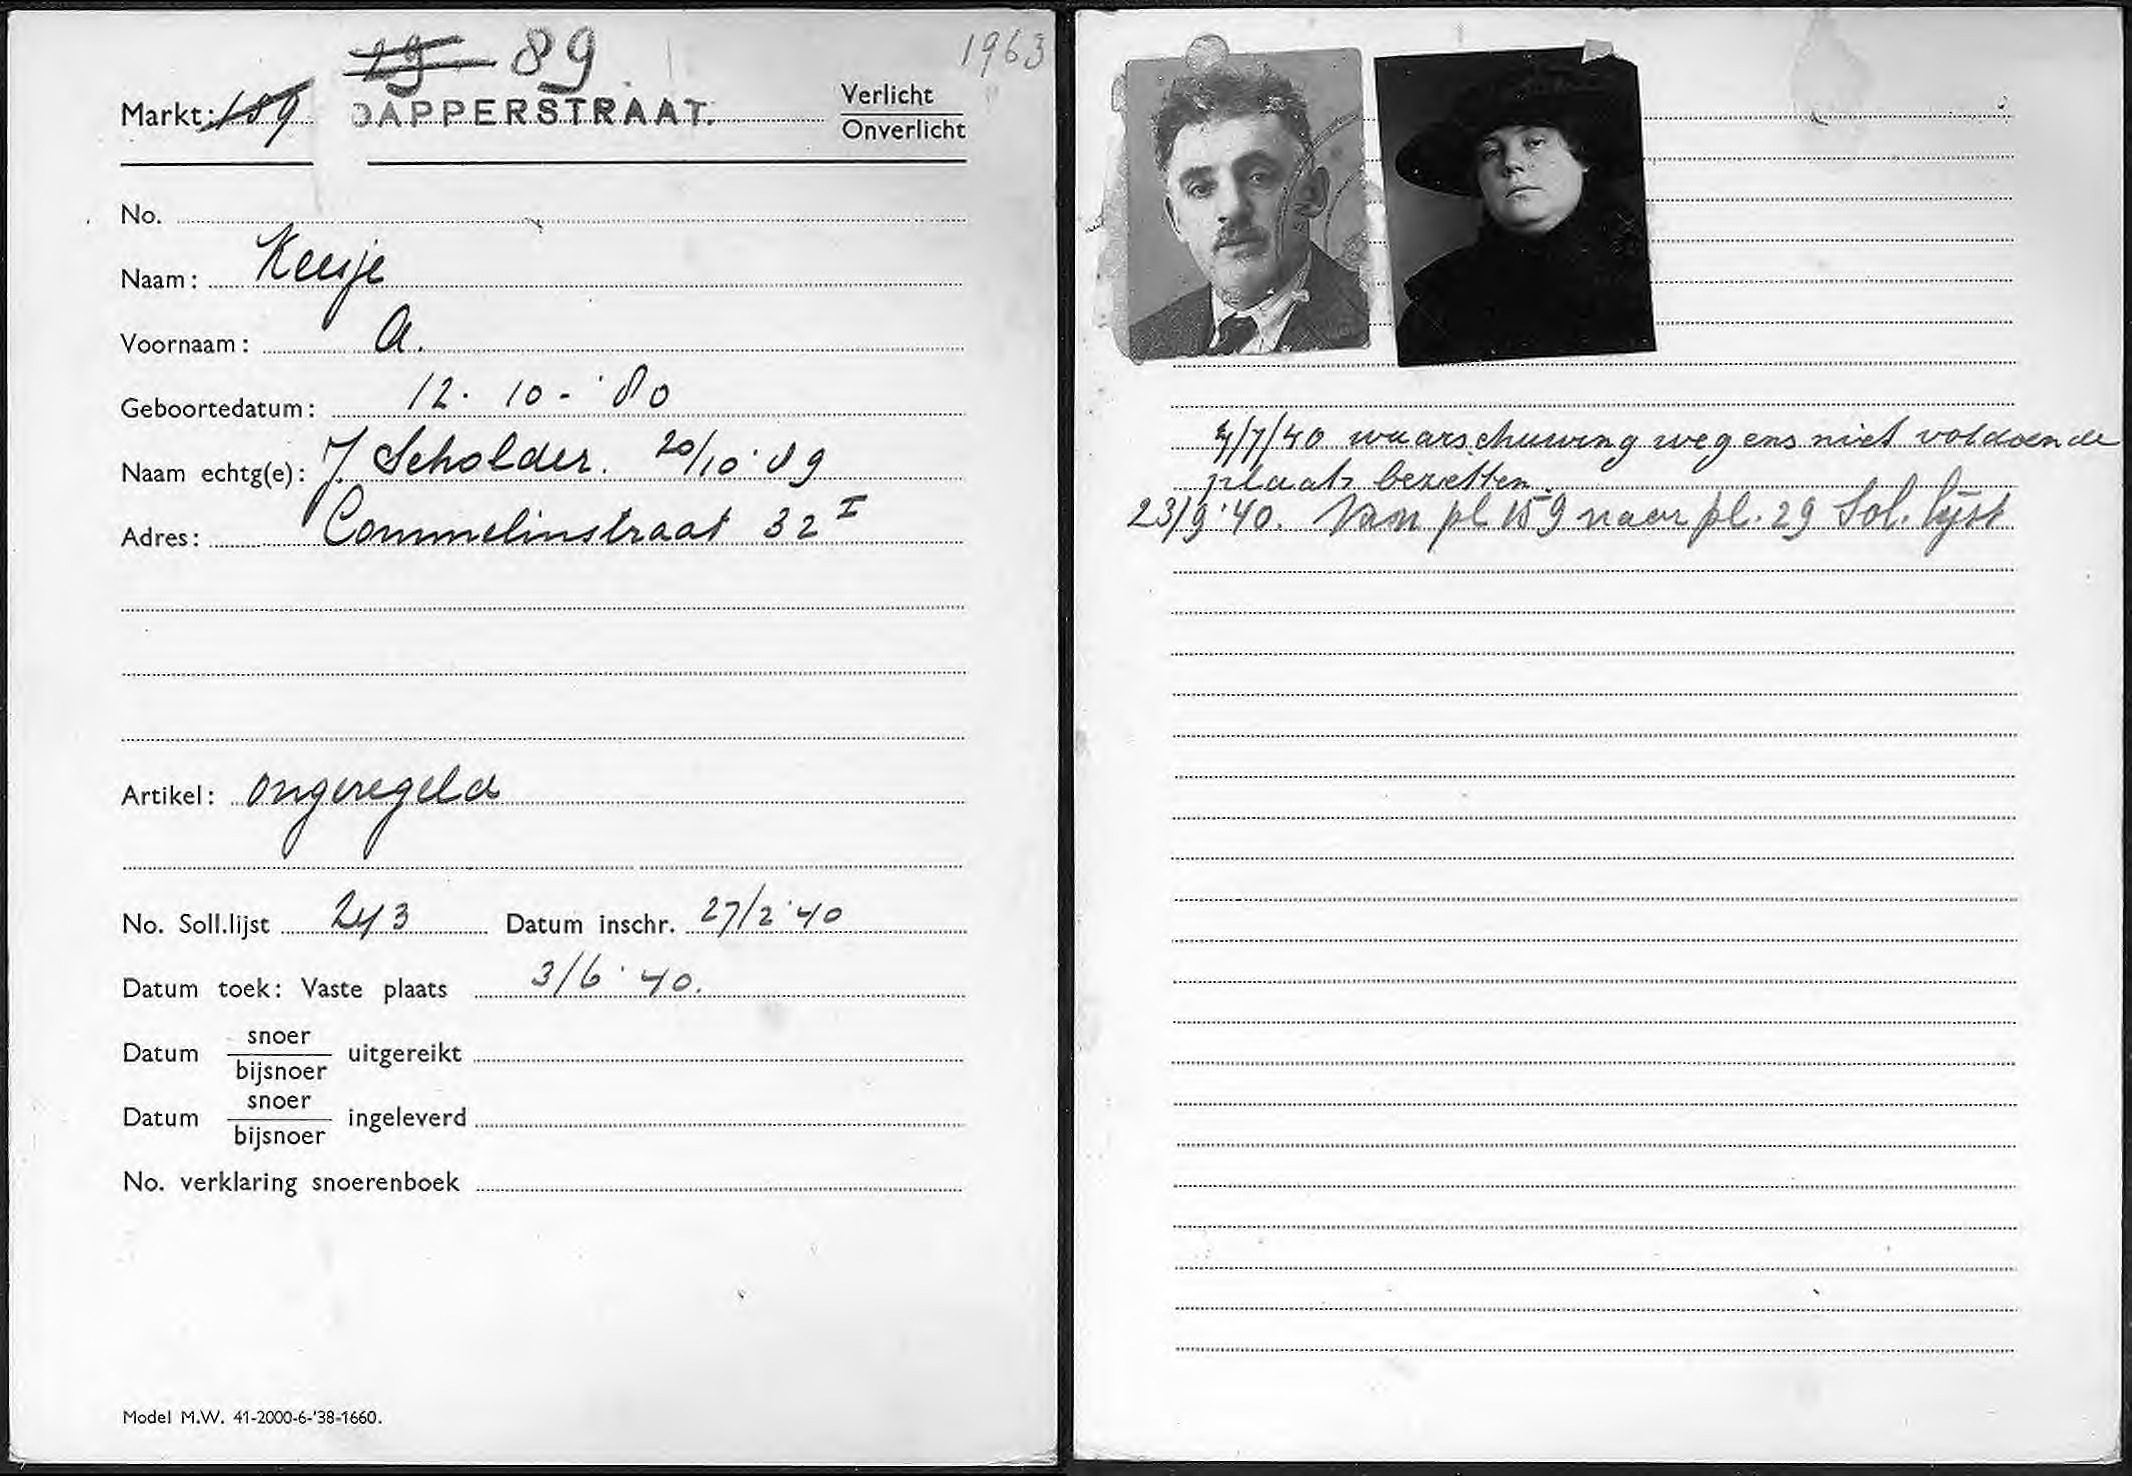 29 89
1963
Markt: 159 DAPPERSTRAAT.
Verlicht
Onverlicht
No.
Naam: Keesje
Voornaam: A.
Geboortedatum: 12. 10 - '80
Naam echtg(e): J. Scholder. 20/10 '89
Adres: Commelinstraat 32 I
Artikel: ongeregeld
No. Soll.lijst 243 Datum inschr. 27/2 '40
Datum toek: Vaste plaats 3/6 '40.
Datum snoer/bijsnoer uitgereikt
Datum snoer/bijsnoer ingeleverd
No. verklaring snoerenboek
Model M.W. 41-2000-6-'38-1660.
/7/40 waarschuwing wegens niet voldoende
plaats bezetten.
23/9 '40. Van pl 159 naar pl. 29 Sol. lijst